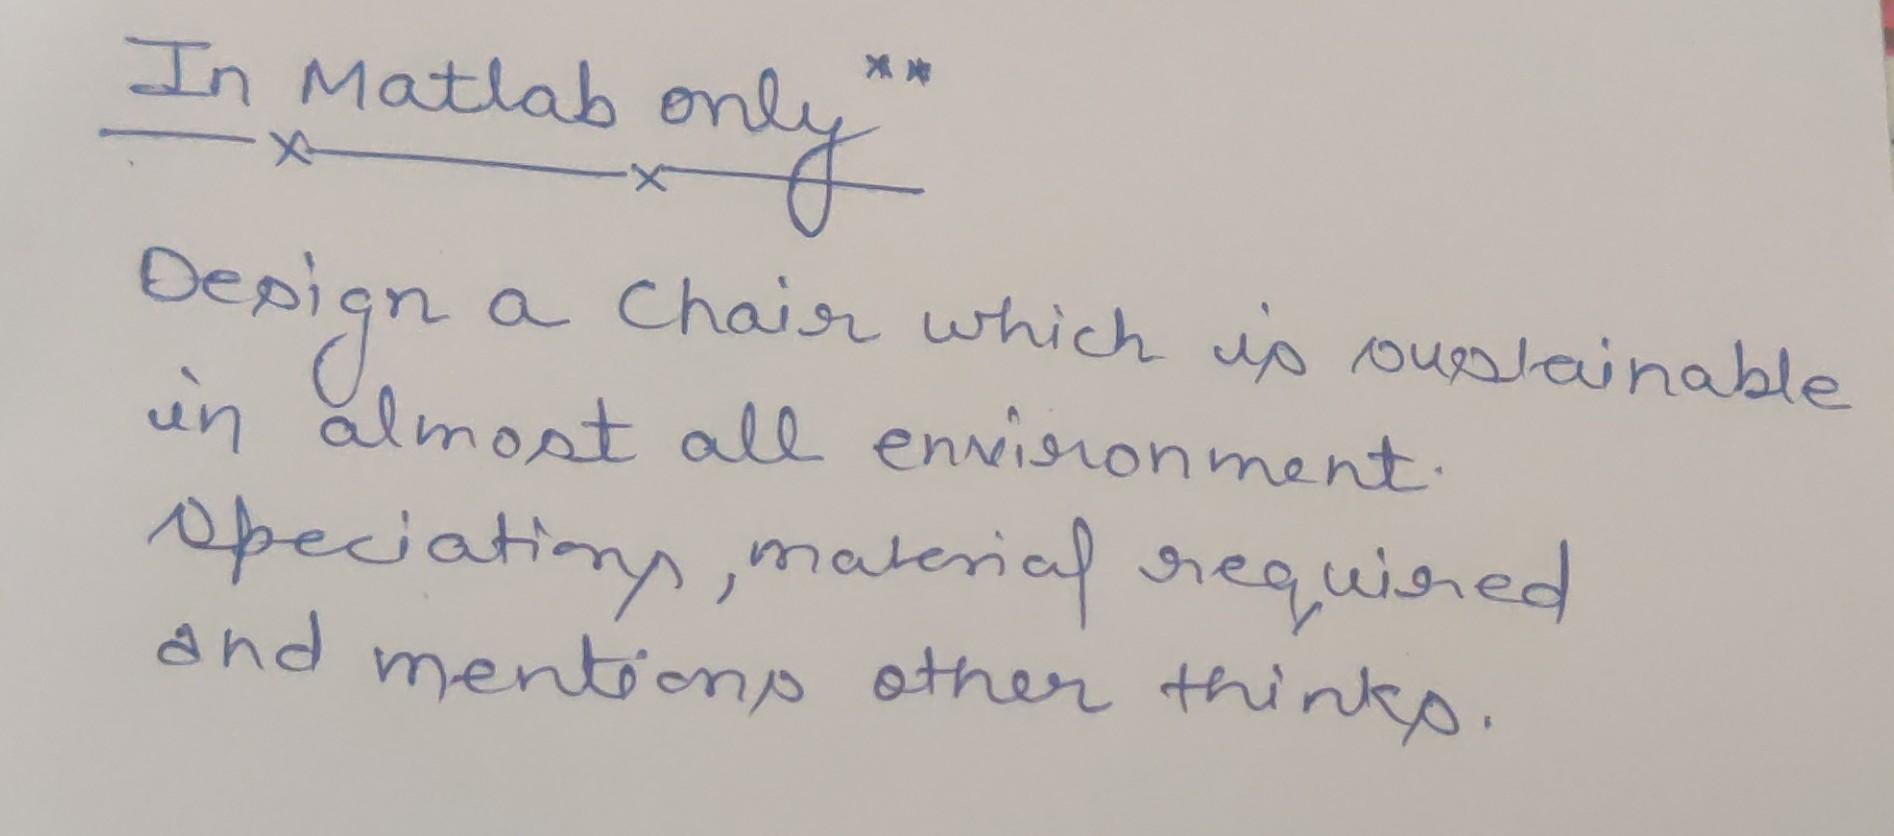 In Matlab only **
Design a Chair which is sustainable
in almost all environment.
Speciations, material required
and mentions other thinks.